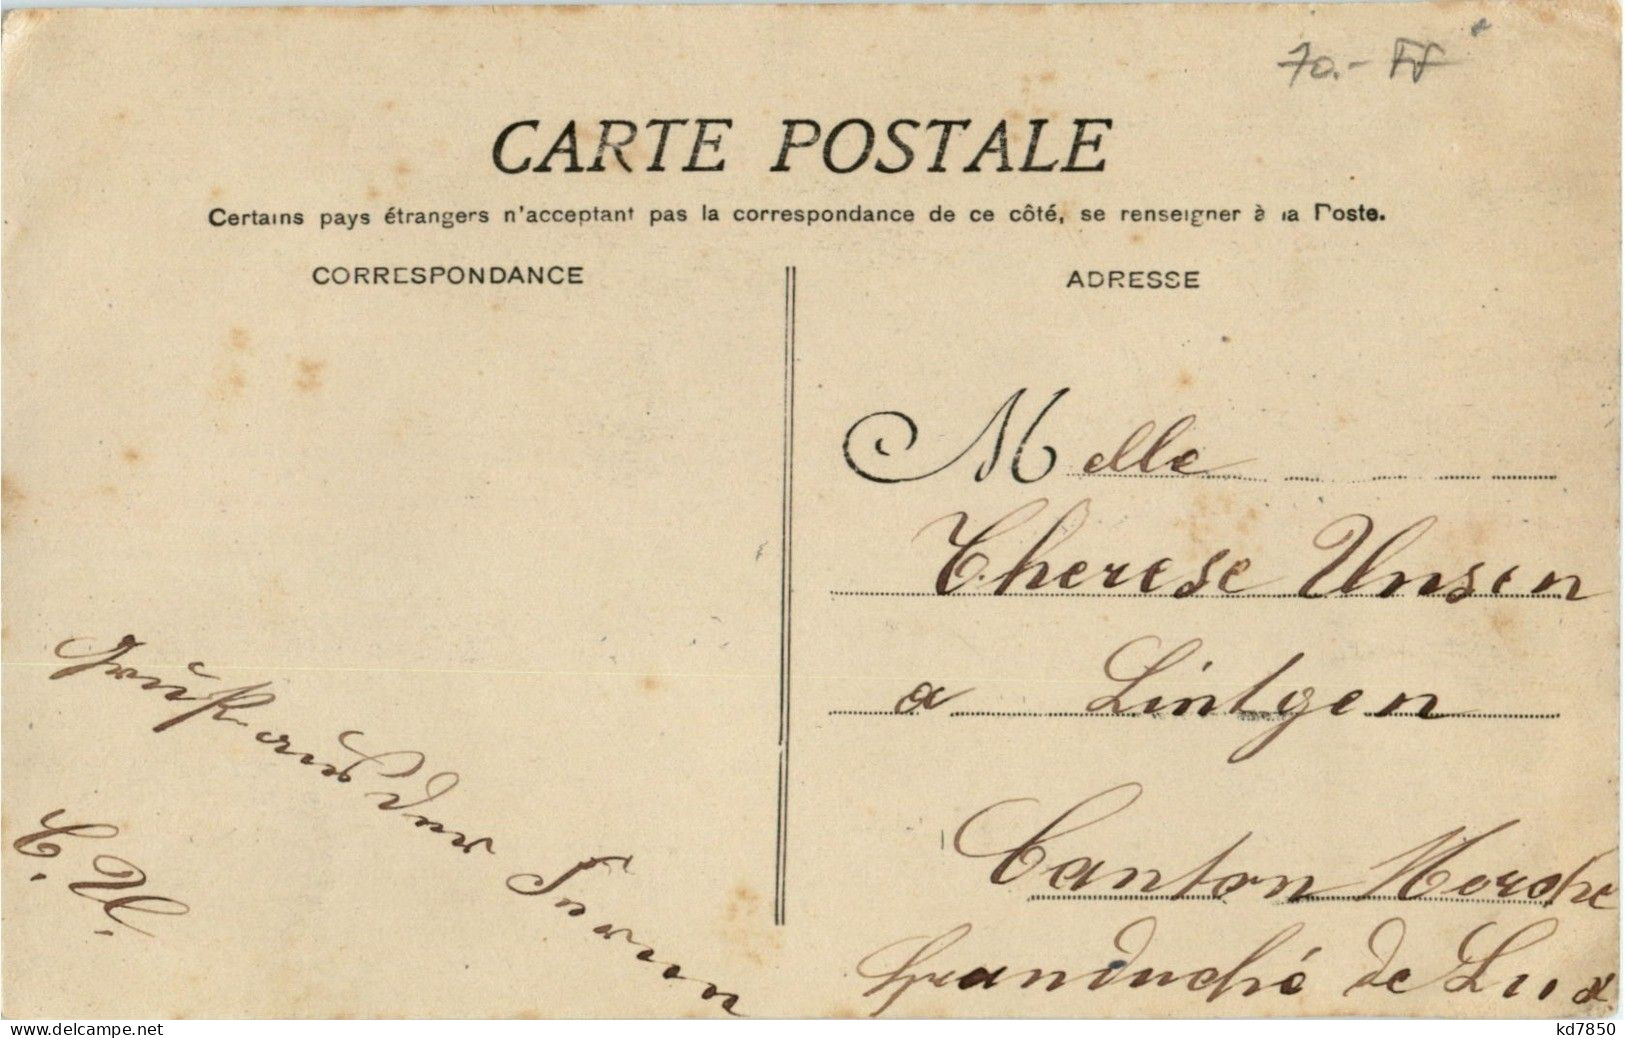 70.- FF
CARTE POSTALE
Certains pays étrangers n'acceptant pas la correspondance de ce côté, se renseigner à la Poste.
CORRESPONDANCE
ADRESSE
Melle
Therese Unsen
a Lintgen
Canton Mersch
Granduché de Lux
Gruß aus der Ferne
C. U.
kd7850